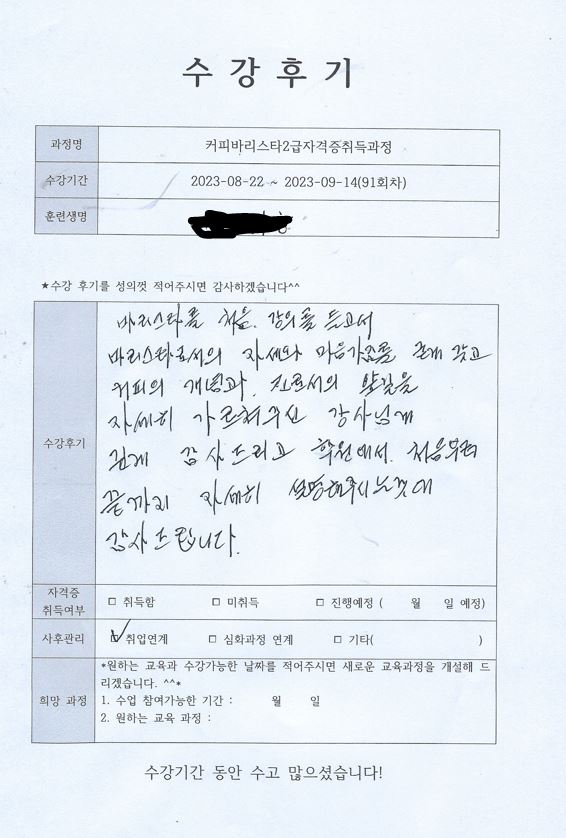 수강후기
과정명 커피바리스타2급자격증취득과정
수강기간 2023-08-22 ~ 2023-09-14(91회차)
훈련생명
★수강 후기를 성의껏 적어주시면 감사하겠습니다^^
수강후기
바리스타를 처음. 강의를 듣고서
바리스타로서의 자세와 마음가짐을 갖고
커피의 개념과, 진로서의 앞길을
자세히 가르쳐주신 강사님께
깊게 감사드리고 학원에서. 처음부터
끝까지 자세히 설명해주시는것에
감사드립니다.
자격증
취득여부
□ 취득함 □ 미취득 □ 진행예정 ( 월 일 예정)
사후관리 ☑ 취업연계 □ 심화과정 연계 □ 기타( )
희망 과정
*원하는 교육과 수강가능한 날짜를 적어주시면 새로운 교육과정을 개설해 드
리겠습니다. ^^*
1. 수업 참여가능한 기간 : 월 일
2. 원하는 교육 과정 :
수강기간 동안 수고 많으셨습니다!